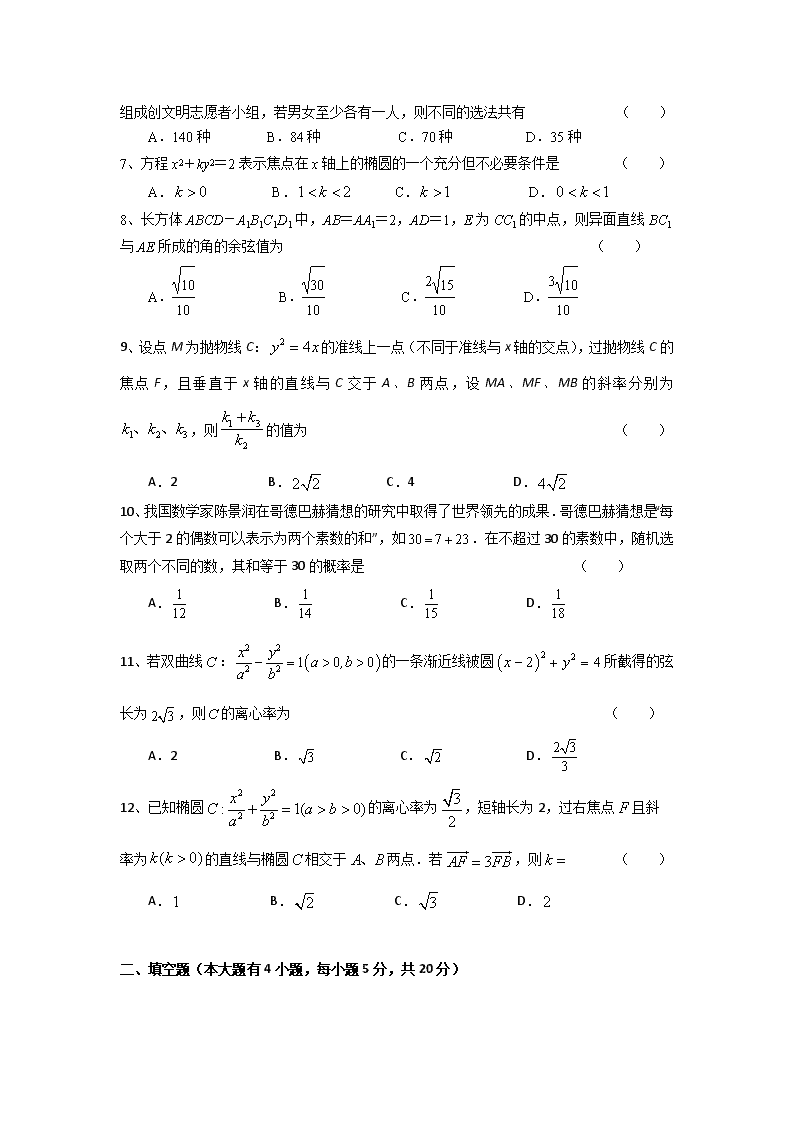 组成创文明志愿者小组，若男女至少各有一人，则不同的选法共有 （  ）
A．140 种 B．84 种 C．70 种 D．35 种
7、方程 x²＋ky²＝2 表示焦点在 x 轴上的椭圆的一个充分但不必要条件是 （  ）
A．k > 0 B．1 < k < 2 C．k > 1 D．0 < k < 1
8、长方体 ABCD－A₁B₁C₁D₁ 中，AB＝AA₁＝2，AD＝1，E 为 CC₁ 的中点，则异面直线 BC₁
与 AE 所成的角的余弦值为 （  ）
A．√10/10 B．√30/10 C．2√15/10 D．3√10/10
9、设点 M 为抛物线 C：y² = 4x 的准线上一点（不同于准线与 x 轴的交点），过抛物线 C 的
焦点 F，且垂直于 x 轴的直线与 C 交于 A 、B 两点，设 MA 、MF 、MB 的斜率分别为
k₁、k₂、k₃，则 (k₁+k₃)/k₂ 的值为 （  ）
A．2 B．2√2 C．4 D．4√2
10、我国数学家陈景润在哥德巴赫猜想的研究中取得了世界领先的成果．哥德巴赫猜想是“每
个大于 2 的偶数可以表示为两个素数的和”，如 30 = 7 + 23．在不超过 30 的素数中，随机选
取两个不同的数，其和等于 30 的概率是 （  ）
A．1/12 B．1/14 C．1/15 D．1/18
11、若双曲线 C：x²/a² − y²/b² = 1(a > 0, b > 0) 的一条渐近线被圆 (x − 2)² + y² = 4 所截得的弦
长为 2√3，则 C 的离心率为 （  ）
A．2 B．√3 C．√2 D．2√3/3
12、已知椭圆 C : x²/a² + y²/b² = 1(a > b > 0) 的离心率为 √3/2，短轴长为 2，过右焦点 F 且斜
率为 k(k > 0) 的直线与椭圆 C 相交于 A、B 两点．若 AF⃗ = 3FB⃗，则 k = （  ）
A．1 B．√2 C．√3 D．2
二、填空题（本大题有 4 小题，每小题 5 分，共 20 分）